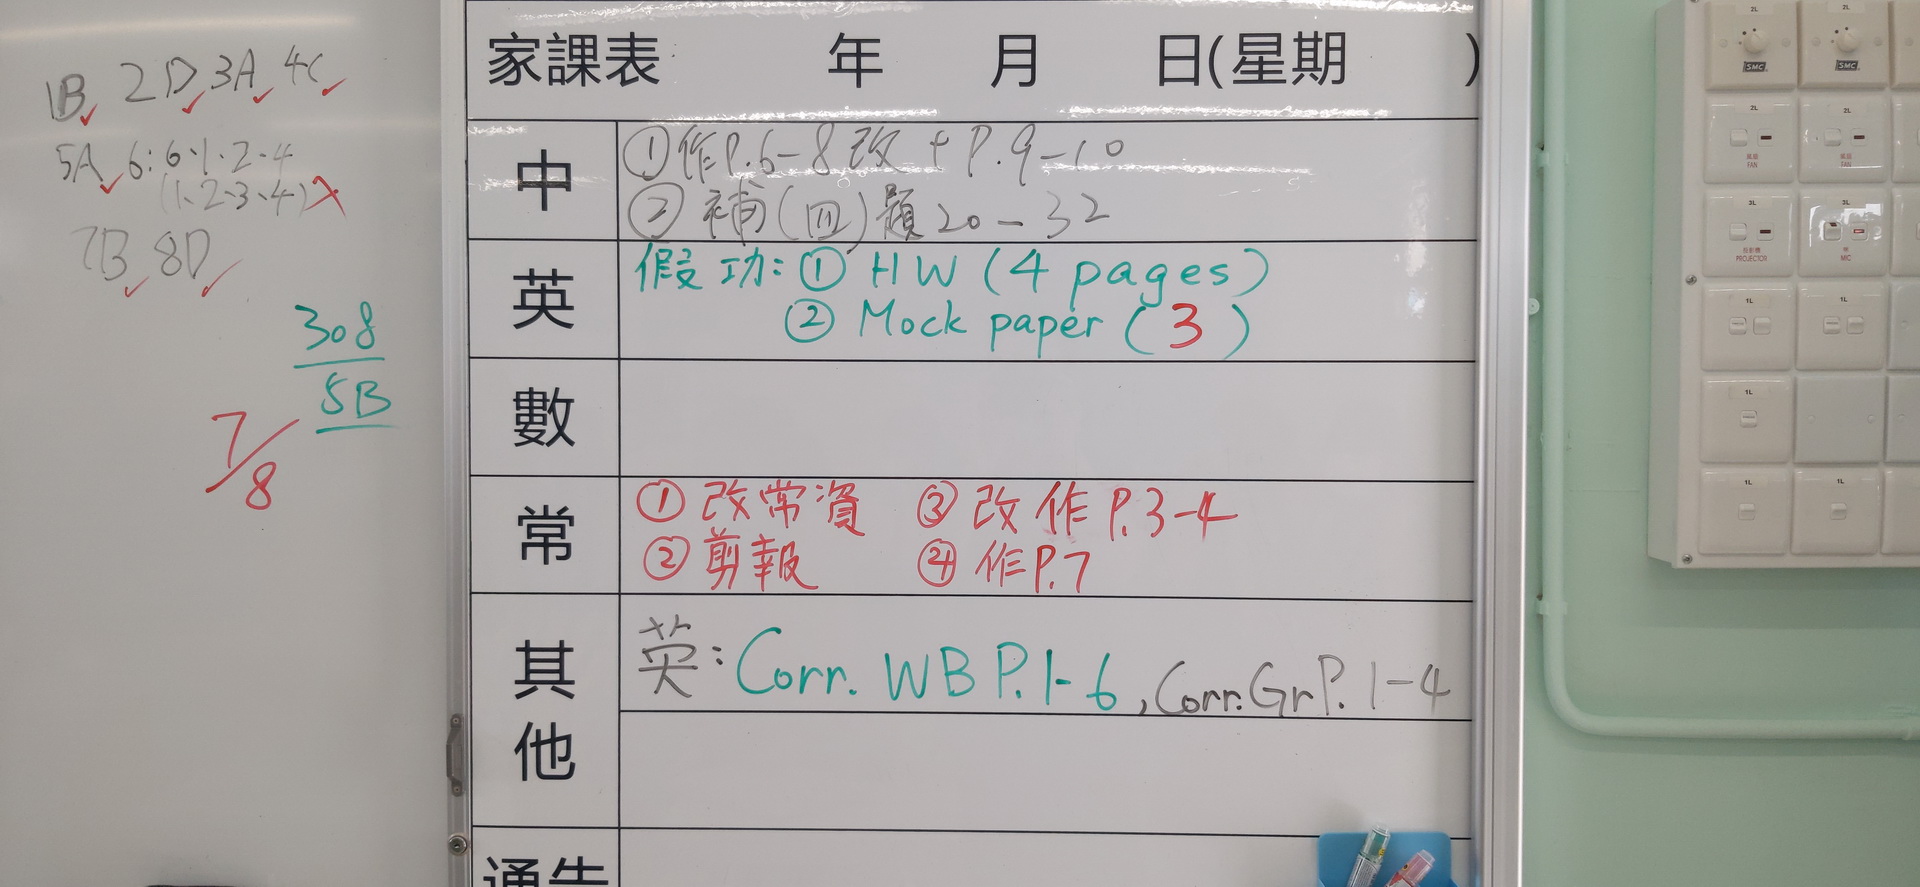 1B 2D 3A 4C
5A 6: 6、1、2、4
(1、2、3、4)
7B 8D
308
5B
7/8
家課表 年 月 日(星期 )
中
①作P.6-8改 + P.9-10
②補(四)題20-32
英
假功:① HW (4 pages)
② Mock paper (3)
數
常
①改常資 ③改作P.3-4
②剪報 ④作P.7
其他
英:Corr. WB P.1-6, Corr. Gr P. 1-4
通告
2L 2L
SMC SMC
2L 2L
風扇 風扇
FAN FAN
3L 3L
投影機 咪
PROJECTOR MIC
1L 1L
1L
1L 1L